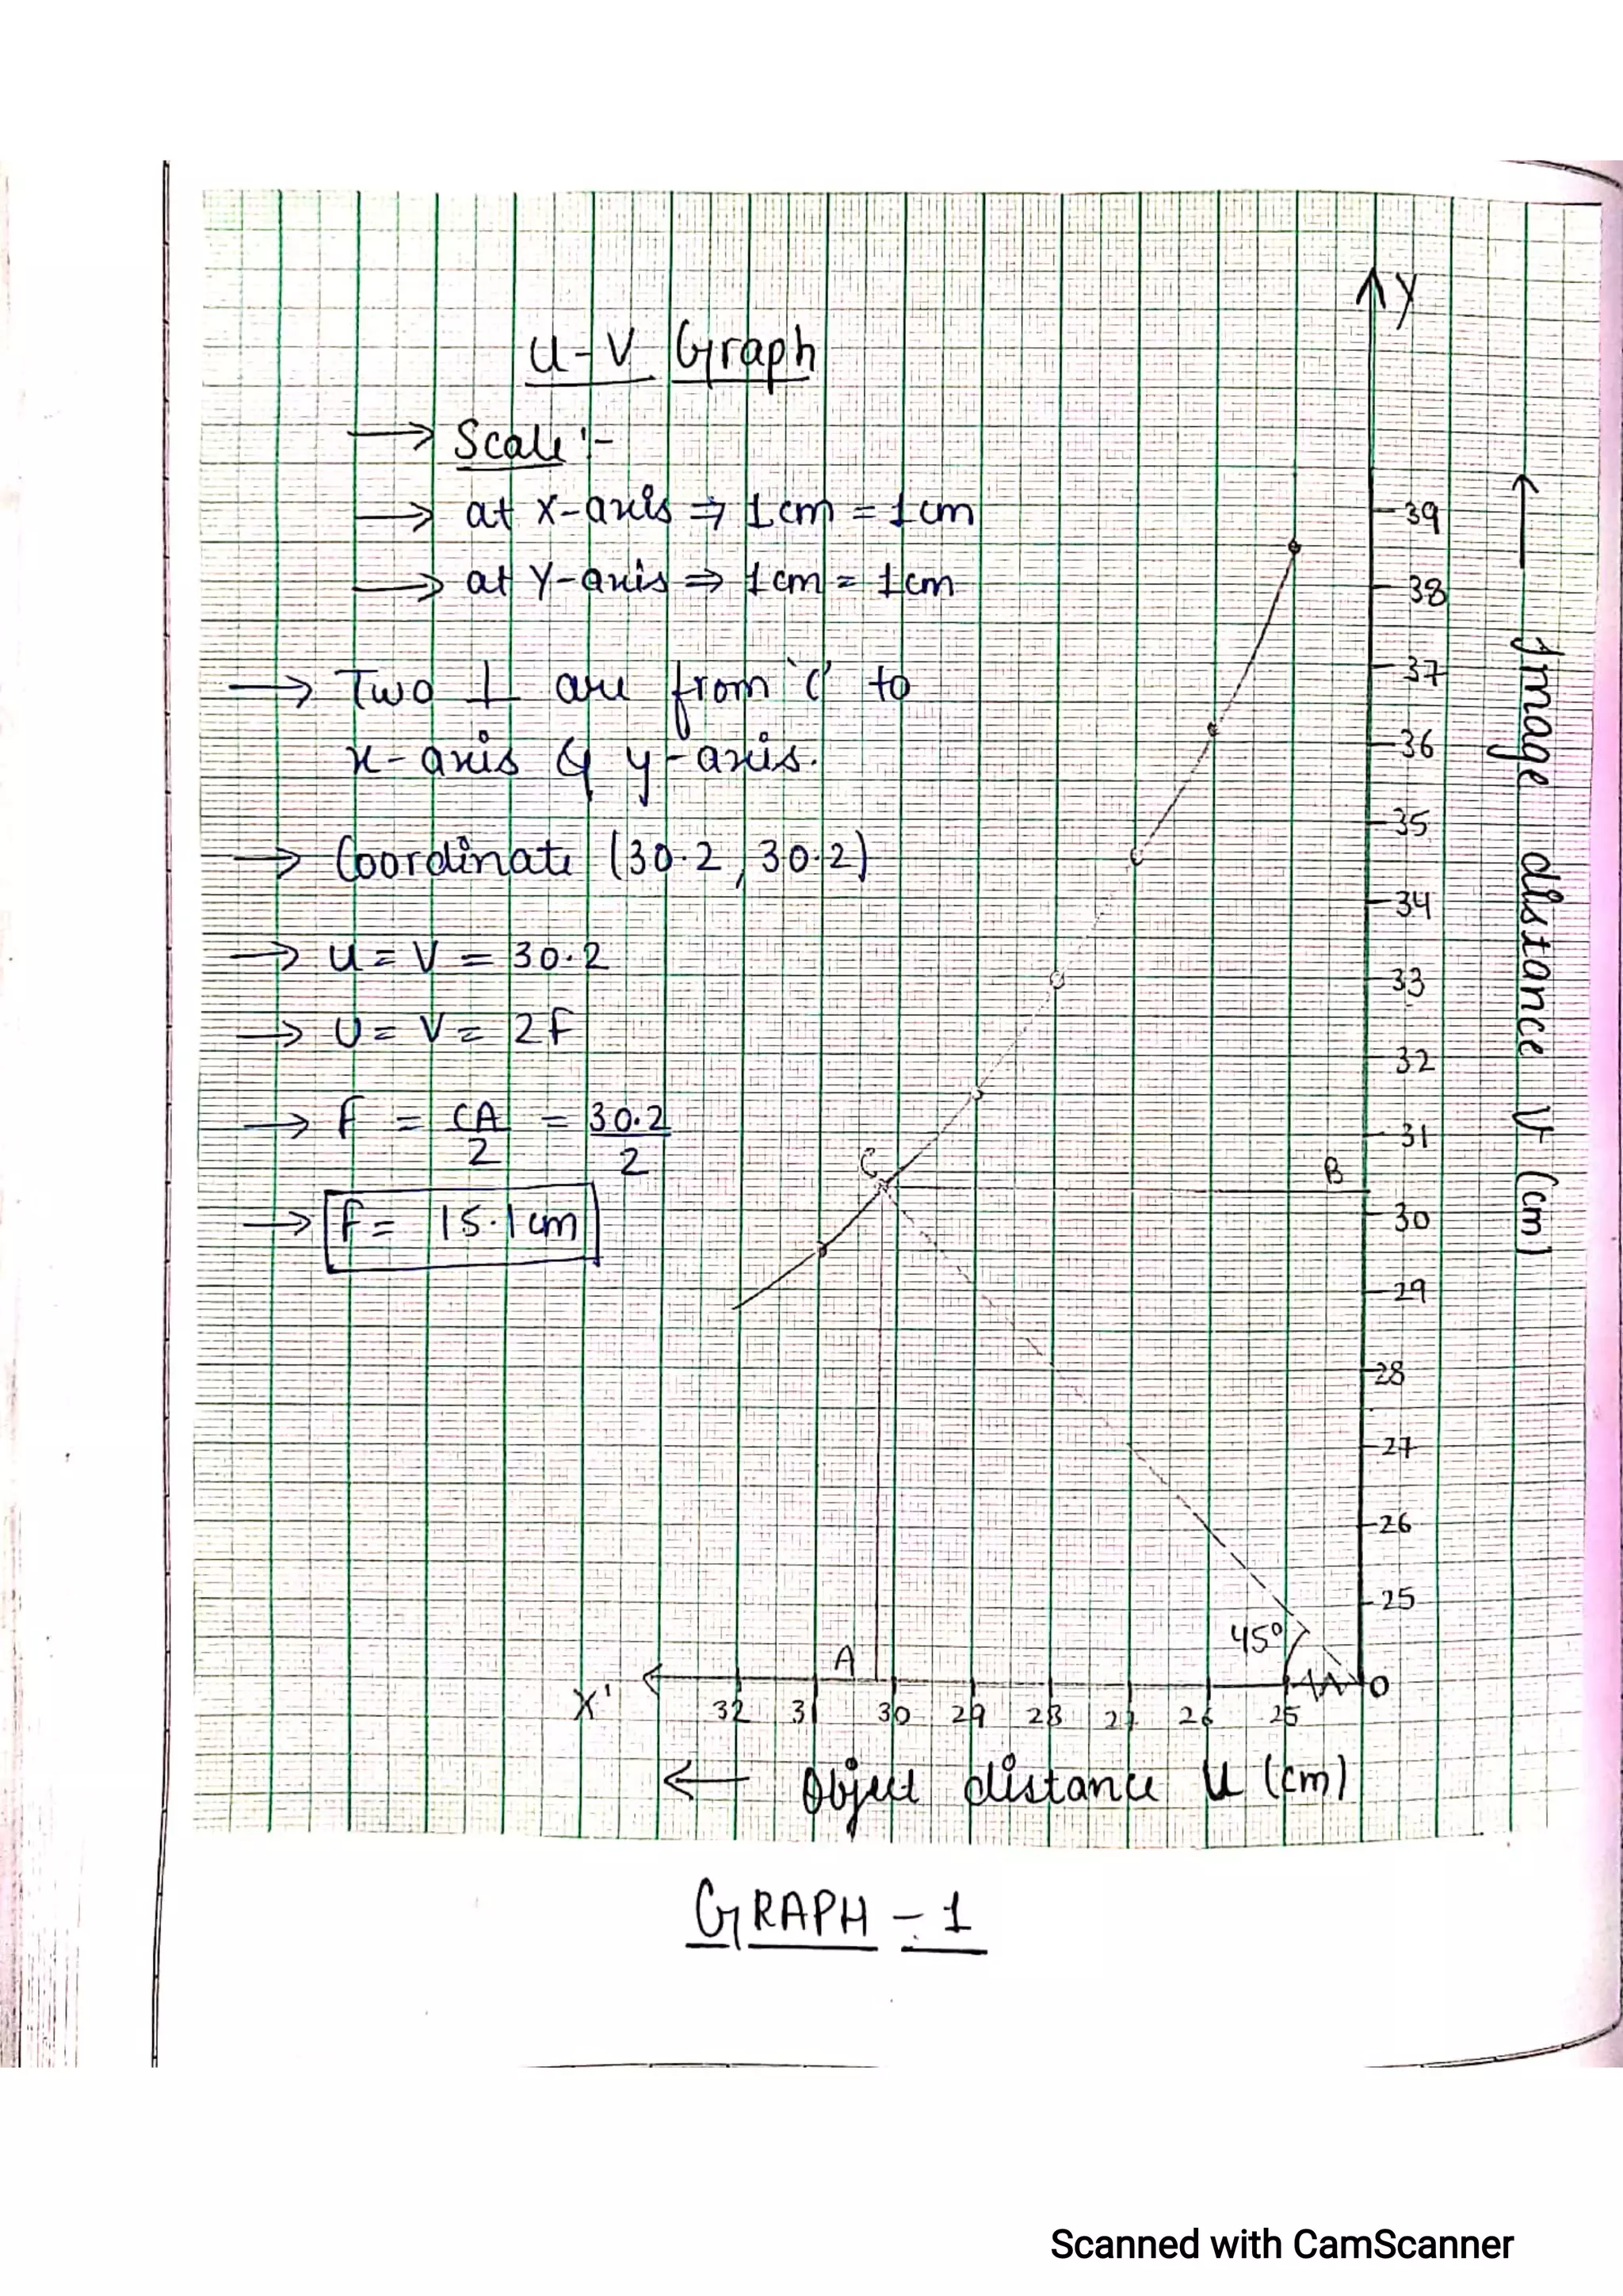 U-V Graph
→ Scale :-
→ at X-axis ⇒ 1 cm = 1 cm
→ at Y-axis ⇒ 1 cm = 1 cm
→ Two ⊥ are from 'C' to
x-axis & y-axis.
→ Coordinate (30.2, 30.2)
→ U = V = 30.2
→ U = V = 2F
→ F = CA/2 = 30.2/2
→ F = 15.1 cm
Y
39
38
37
36
35
34
33
32
31
30
29
28
27
26
25
→ Image distance V (cm)
C
B
A
45°
O
X'
32 31 30 29 28 27 26 25
← Object distance U (cm)
GRAPH - 1
Scanned with CamScanner